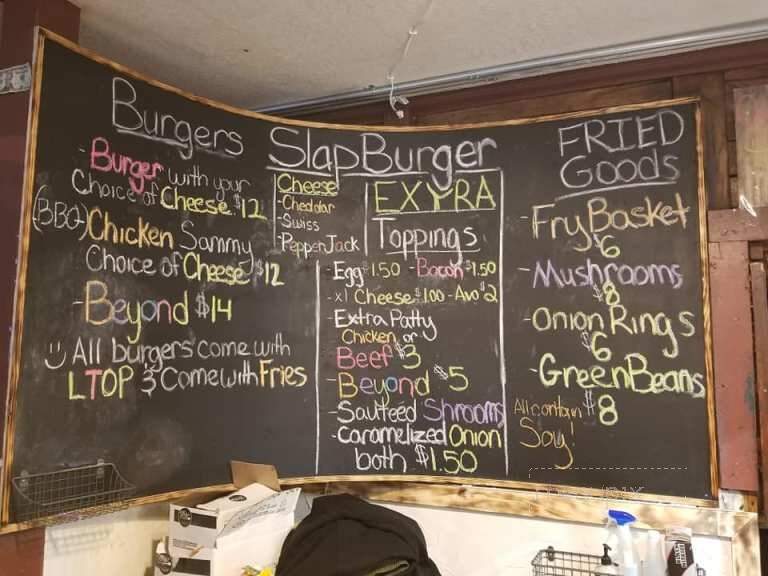 Burgers
- Burger with your
Choice of Cheese $12
(BBQ) Chicken Sammy
Choice of Cheese $12
- Beyond $14
All burgers come with
LTOP & Come with Fries
SlapBurger
Cheese
- Cheddar
- Swiss
- PepperJack
EXYRA
Toppings
- Egg $1.50 - Bacon $1.50
- x1 Cheese $1.00 - Avo $2
- Extra Patty
Chicken or
Beef $3
- Beyond $5
- Sauteed Shrooms
- Caramelized Onion
both $1.50
FRIED
Goods
- Fry Basket
$6
- Mushrooms
$8
- Onion Rings
$6
- Green Beans
$8
All contain
Soy!